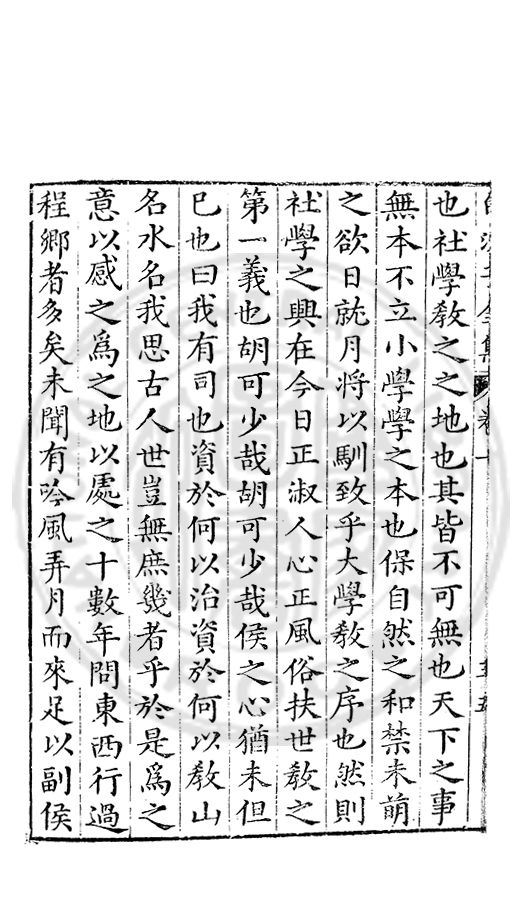 也社學教之之地也其皆不可無也天下之事
無本不立小學學之本也保自然之和禁未萌
之欲日就月將以馴致乎大學教之序也然則
社學之興在今日正淑人心正風俗扶世教之
第一義也胡可少哉胡可少哉侯之心猶未但
已也曰我有司也資於何以治資於何以教山
名水名我思古人世豈無庶幾者乎於是爲之
意以感之爲之地以處之十數年間東西行過
程鄉者多矣未聞有吟風弄月而來足以副侯